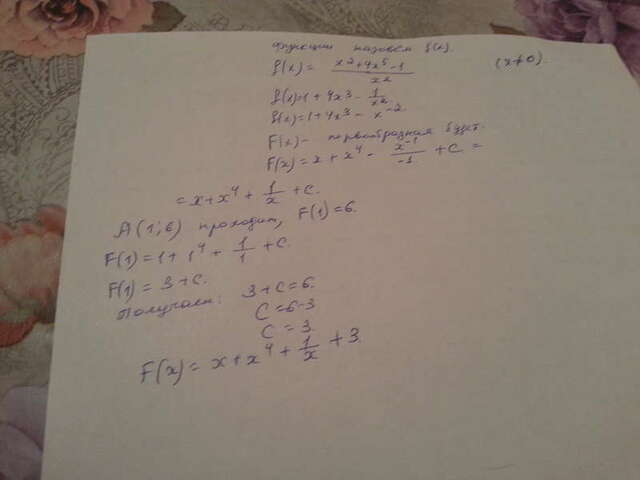 функцию назовем f(x).
f(x) = (x²+4x⁵-1)/x² (x≠0).
f(x)=1+4x³-1/x²
f(x)=1+4x³-x⁻².
F(x)- первообразная будет.
F(x)=x+x⁴-x⁻¹/-1+C.=
=x+x⁴+1/x+C.
A(1;6) проходит, F(1)=6.
F(1)=1+1⁴+1/1+C.
F(1)=3+C.
Получаем: 3+C=6.
C=6-3
C=3.
F(x)=x+x⁴+1/x+3.